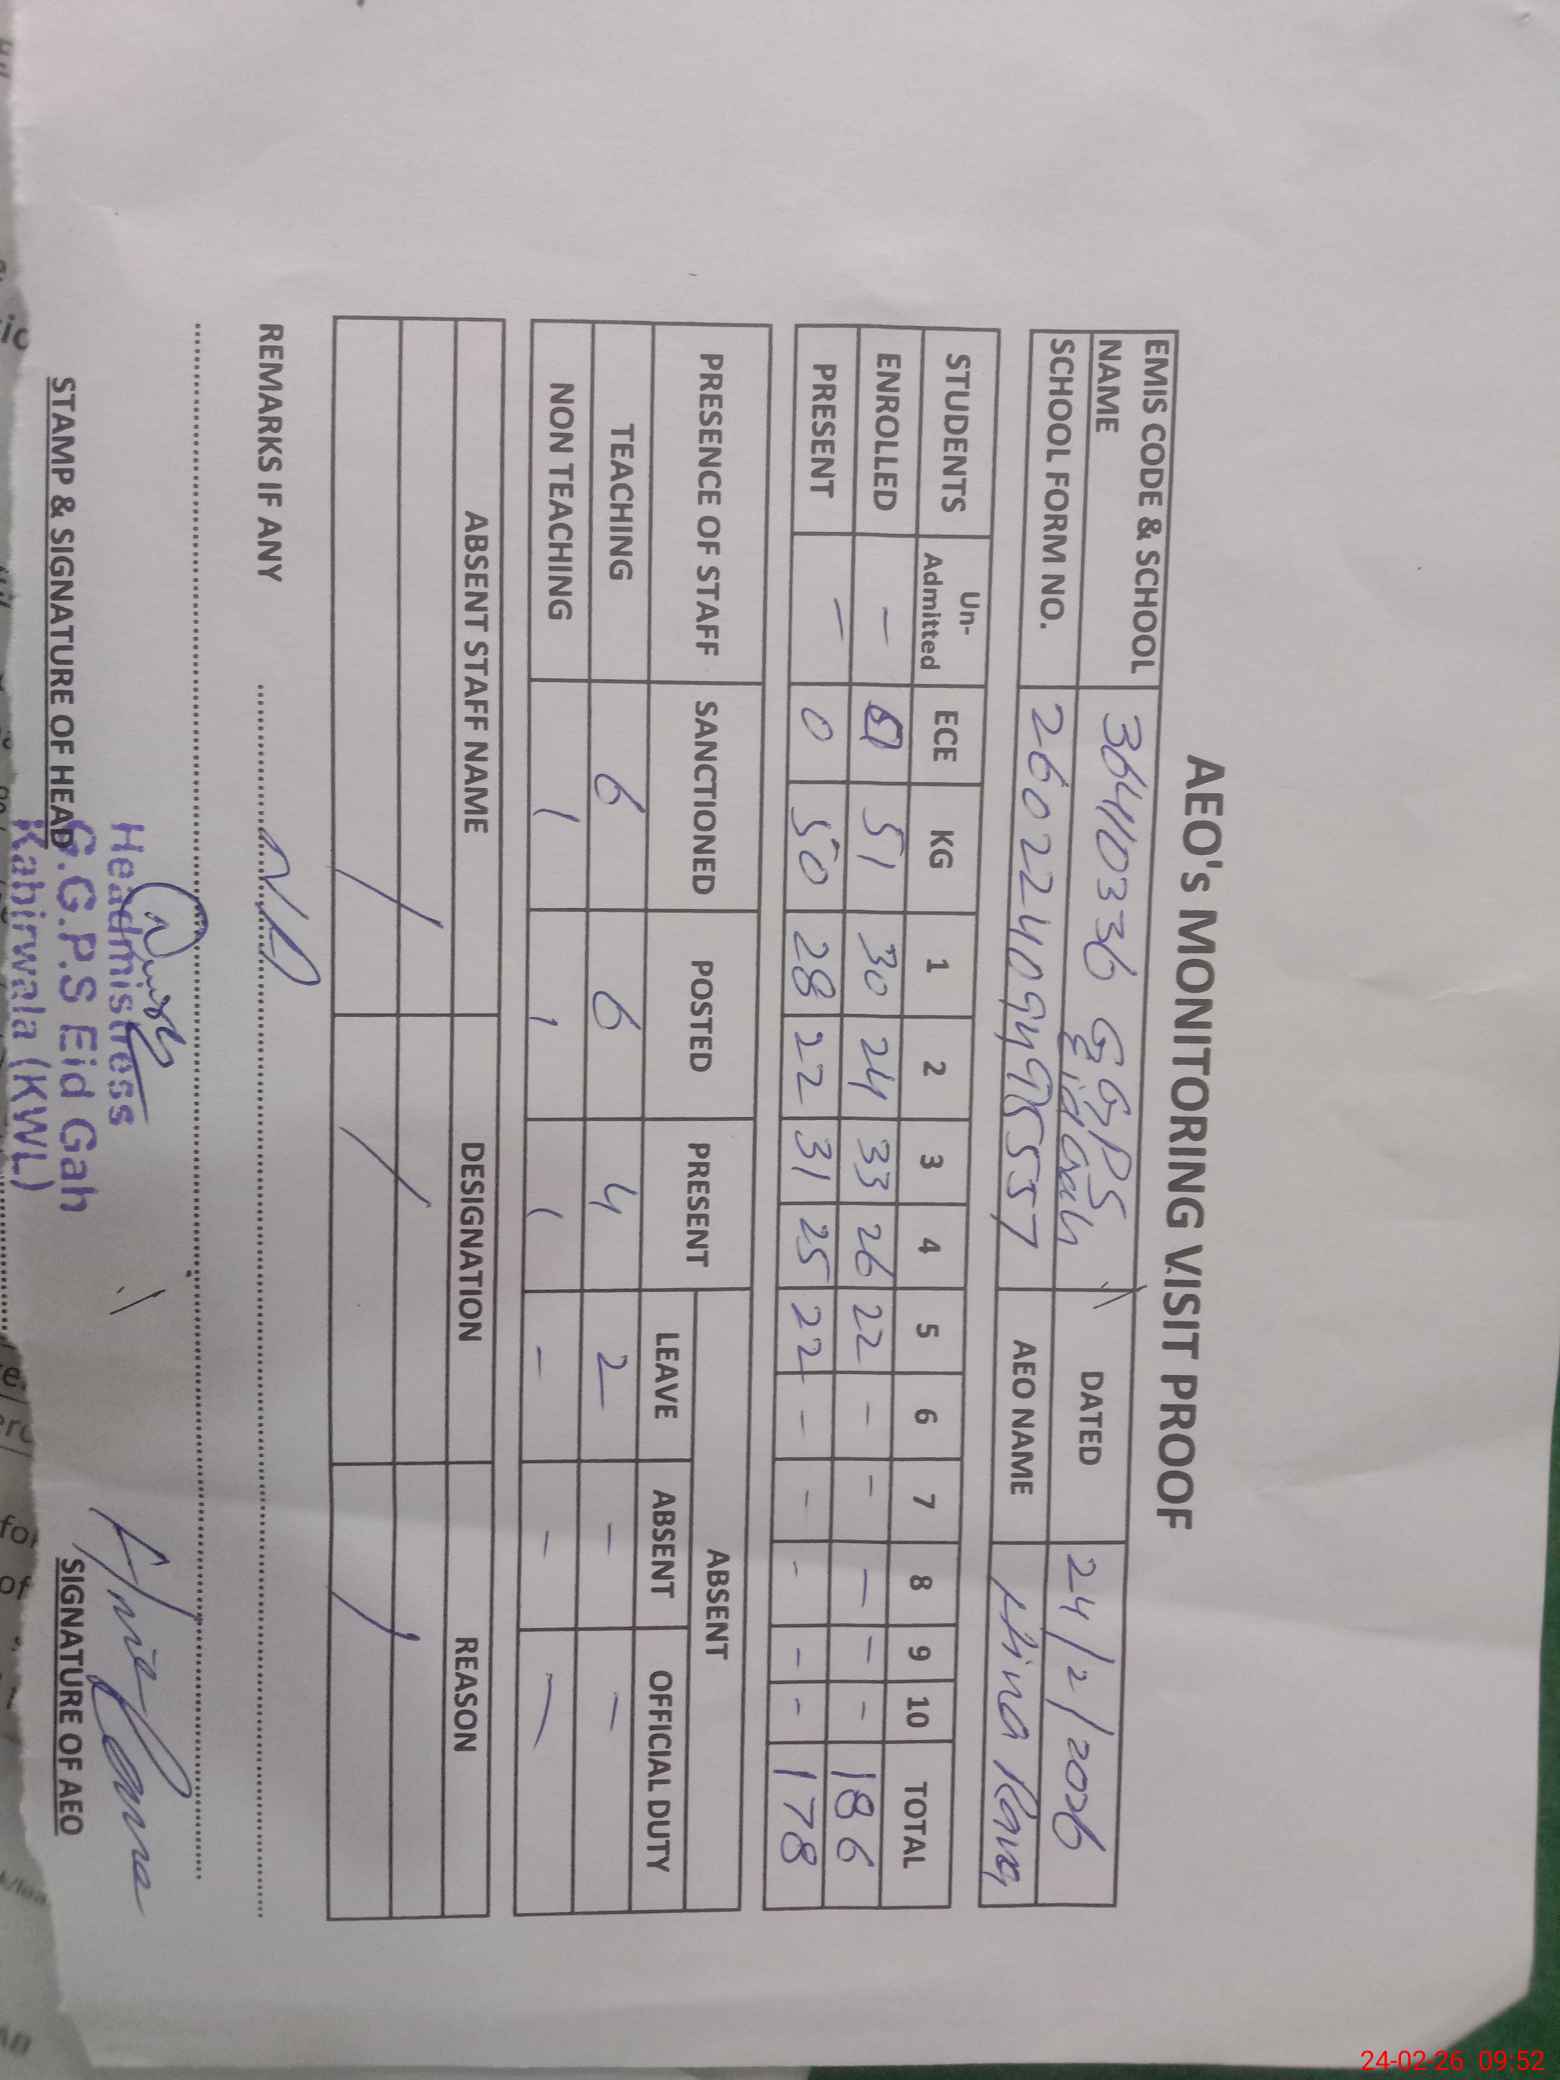 AEO's MONITORING VISIT PROOF
EMIS CODE & SCHOOL NAME 36410336 GGPS Eid Gah DATED 24/2/2026
SCHOOL FORM NO. AEO NAME Hina Rana
STUDENTS Un-Admitted ECE KG 1 2 3 4 5 6 7 8 9 10 TOTAL
ENROLLED - 51 30 24 33 26 22 - - - - - 186
PRESENT - 0 50 28 22 31 25 22 - - - - - 178
PRESENCE OF STAFF SANCTIONED POSTED PRESENT ABSENT
LEAVE ABSENT OFFICIAL DUTY
TEACHING 6 6 4 2 - -
NON TEACHING 1 1 1 - - -
ABSENT STAFF NAME DESIGNATION REASON
REMARKS IF ANY
Headmistress
G.G.P.S Eid Gah
Kabirwala (KWL)
STAMP & SIGNATURE OF HEAD
Hina Rana
SIGNATURE OF AEO
24-02-26 09:52